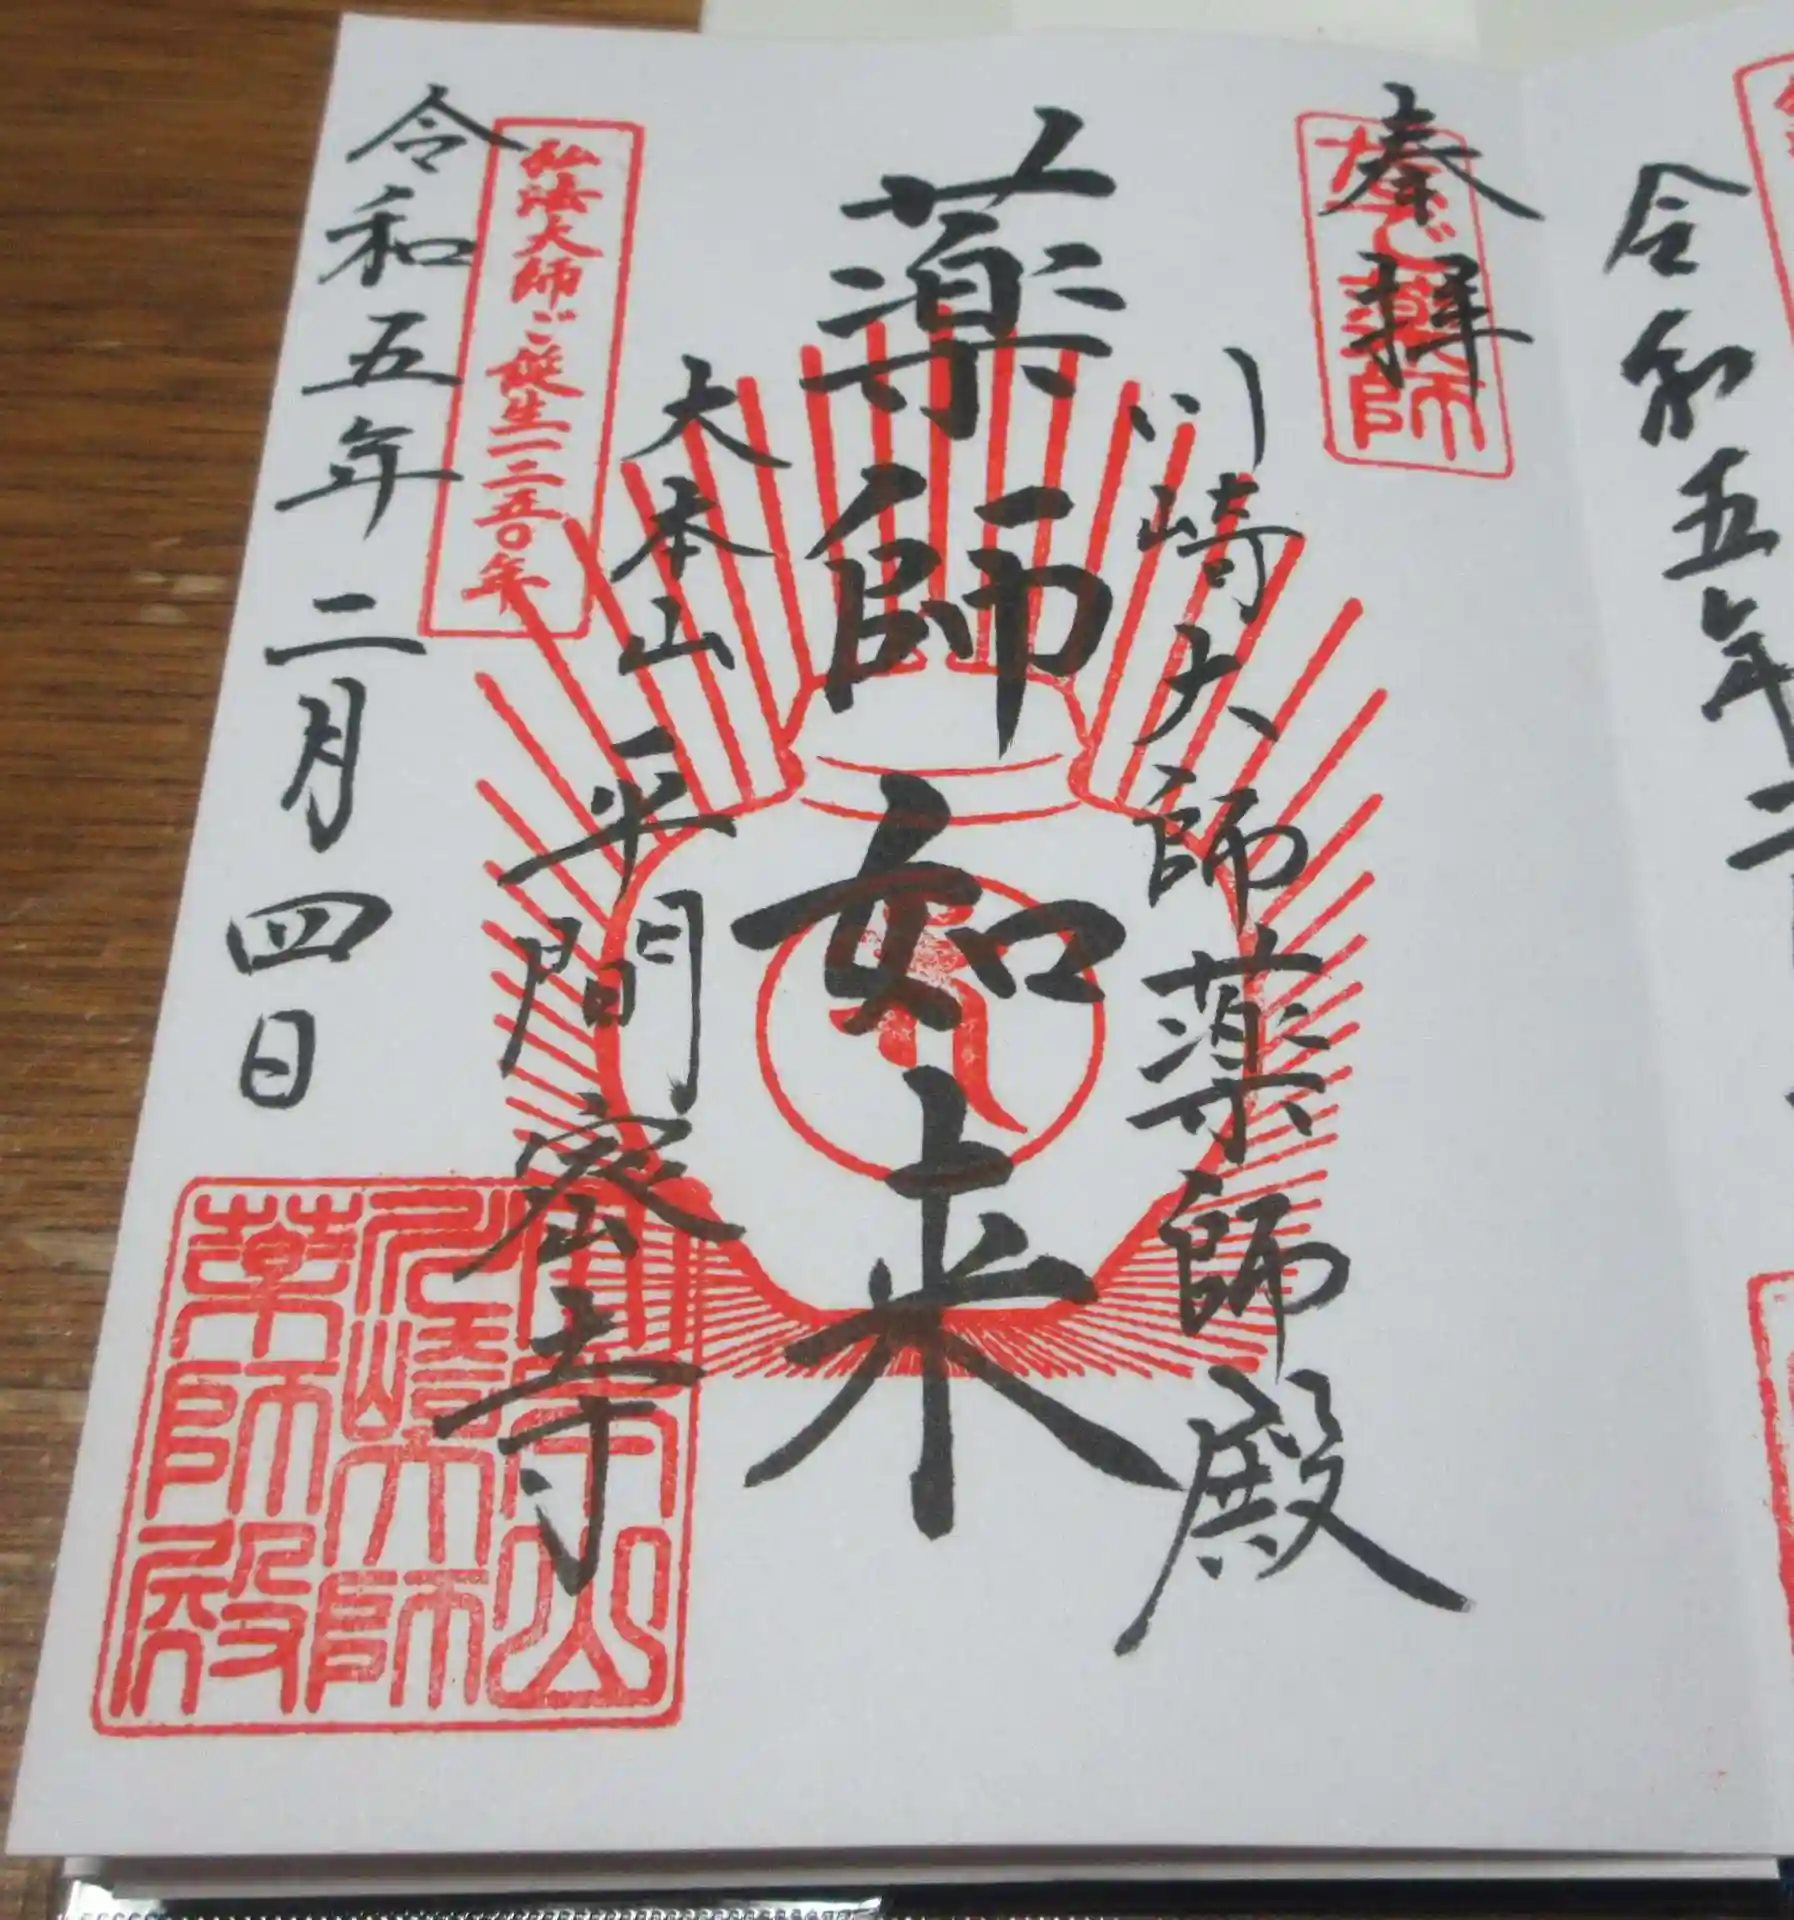 奉拝
なで薬師
川崎大師薬師殿
薬師如来
大本山 平間密寺
弘法大師ご誕生一二五〇年
令和五年二月四日
金剛山
川崎大師
薬師殿
令和五年二